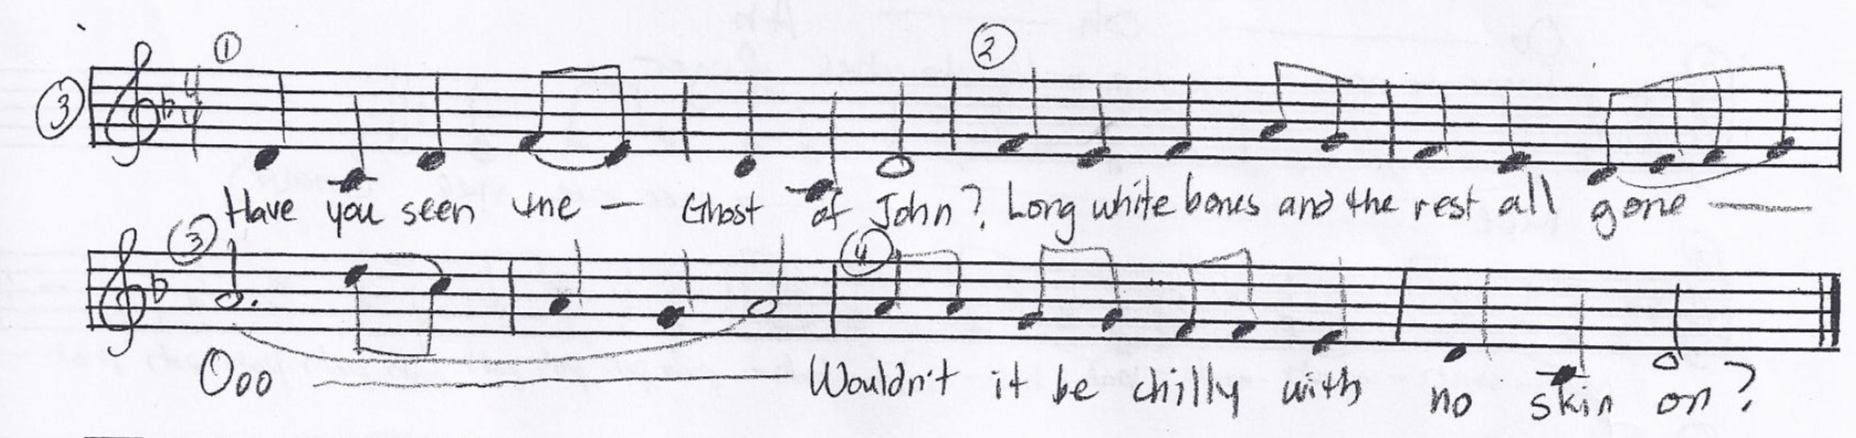 ① ②
③ 4 4
Have you seen the — Ghost of John? Long white bones and the rest all gone —
③ ④
Ooo — Wouldn't it be chilly with no skin on?